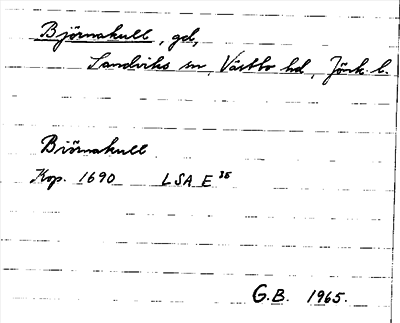 Björnakull, gd,
Sandviks sn, Västbo hd, Jönk. l.
Biörnakull
Kop. 1690 LSA E 36
G.B. 1965.